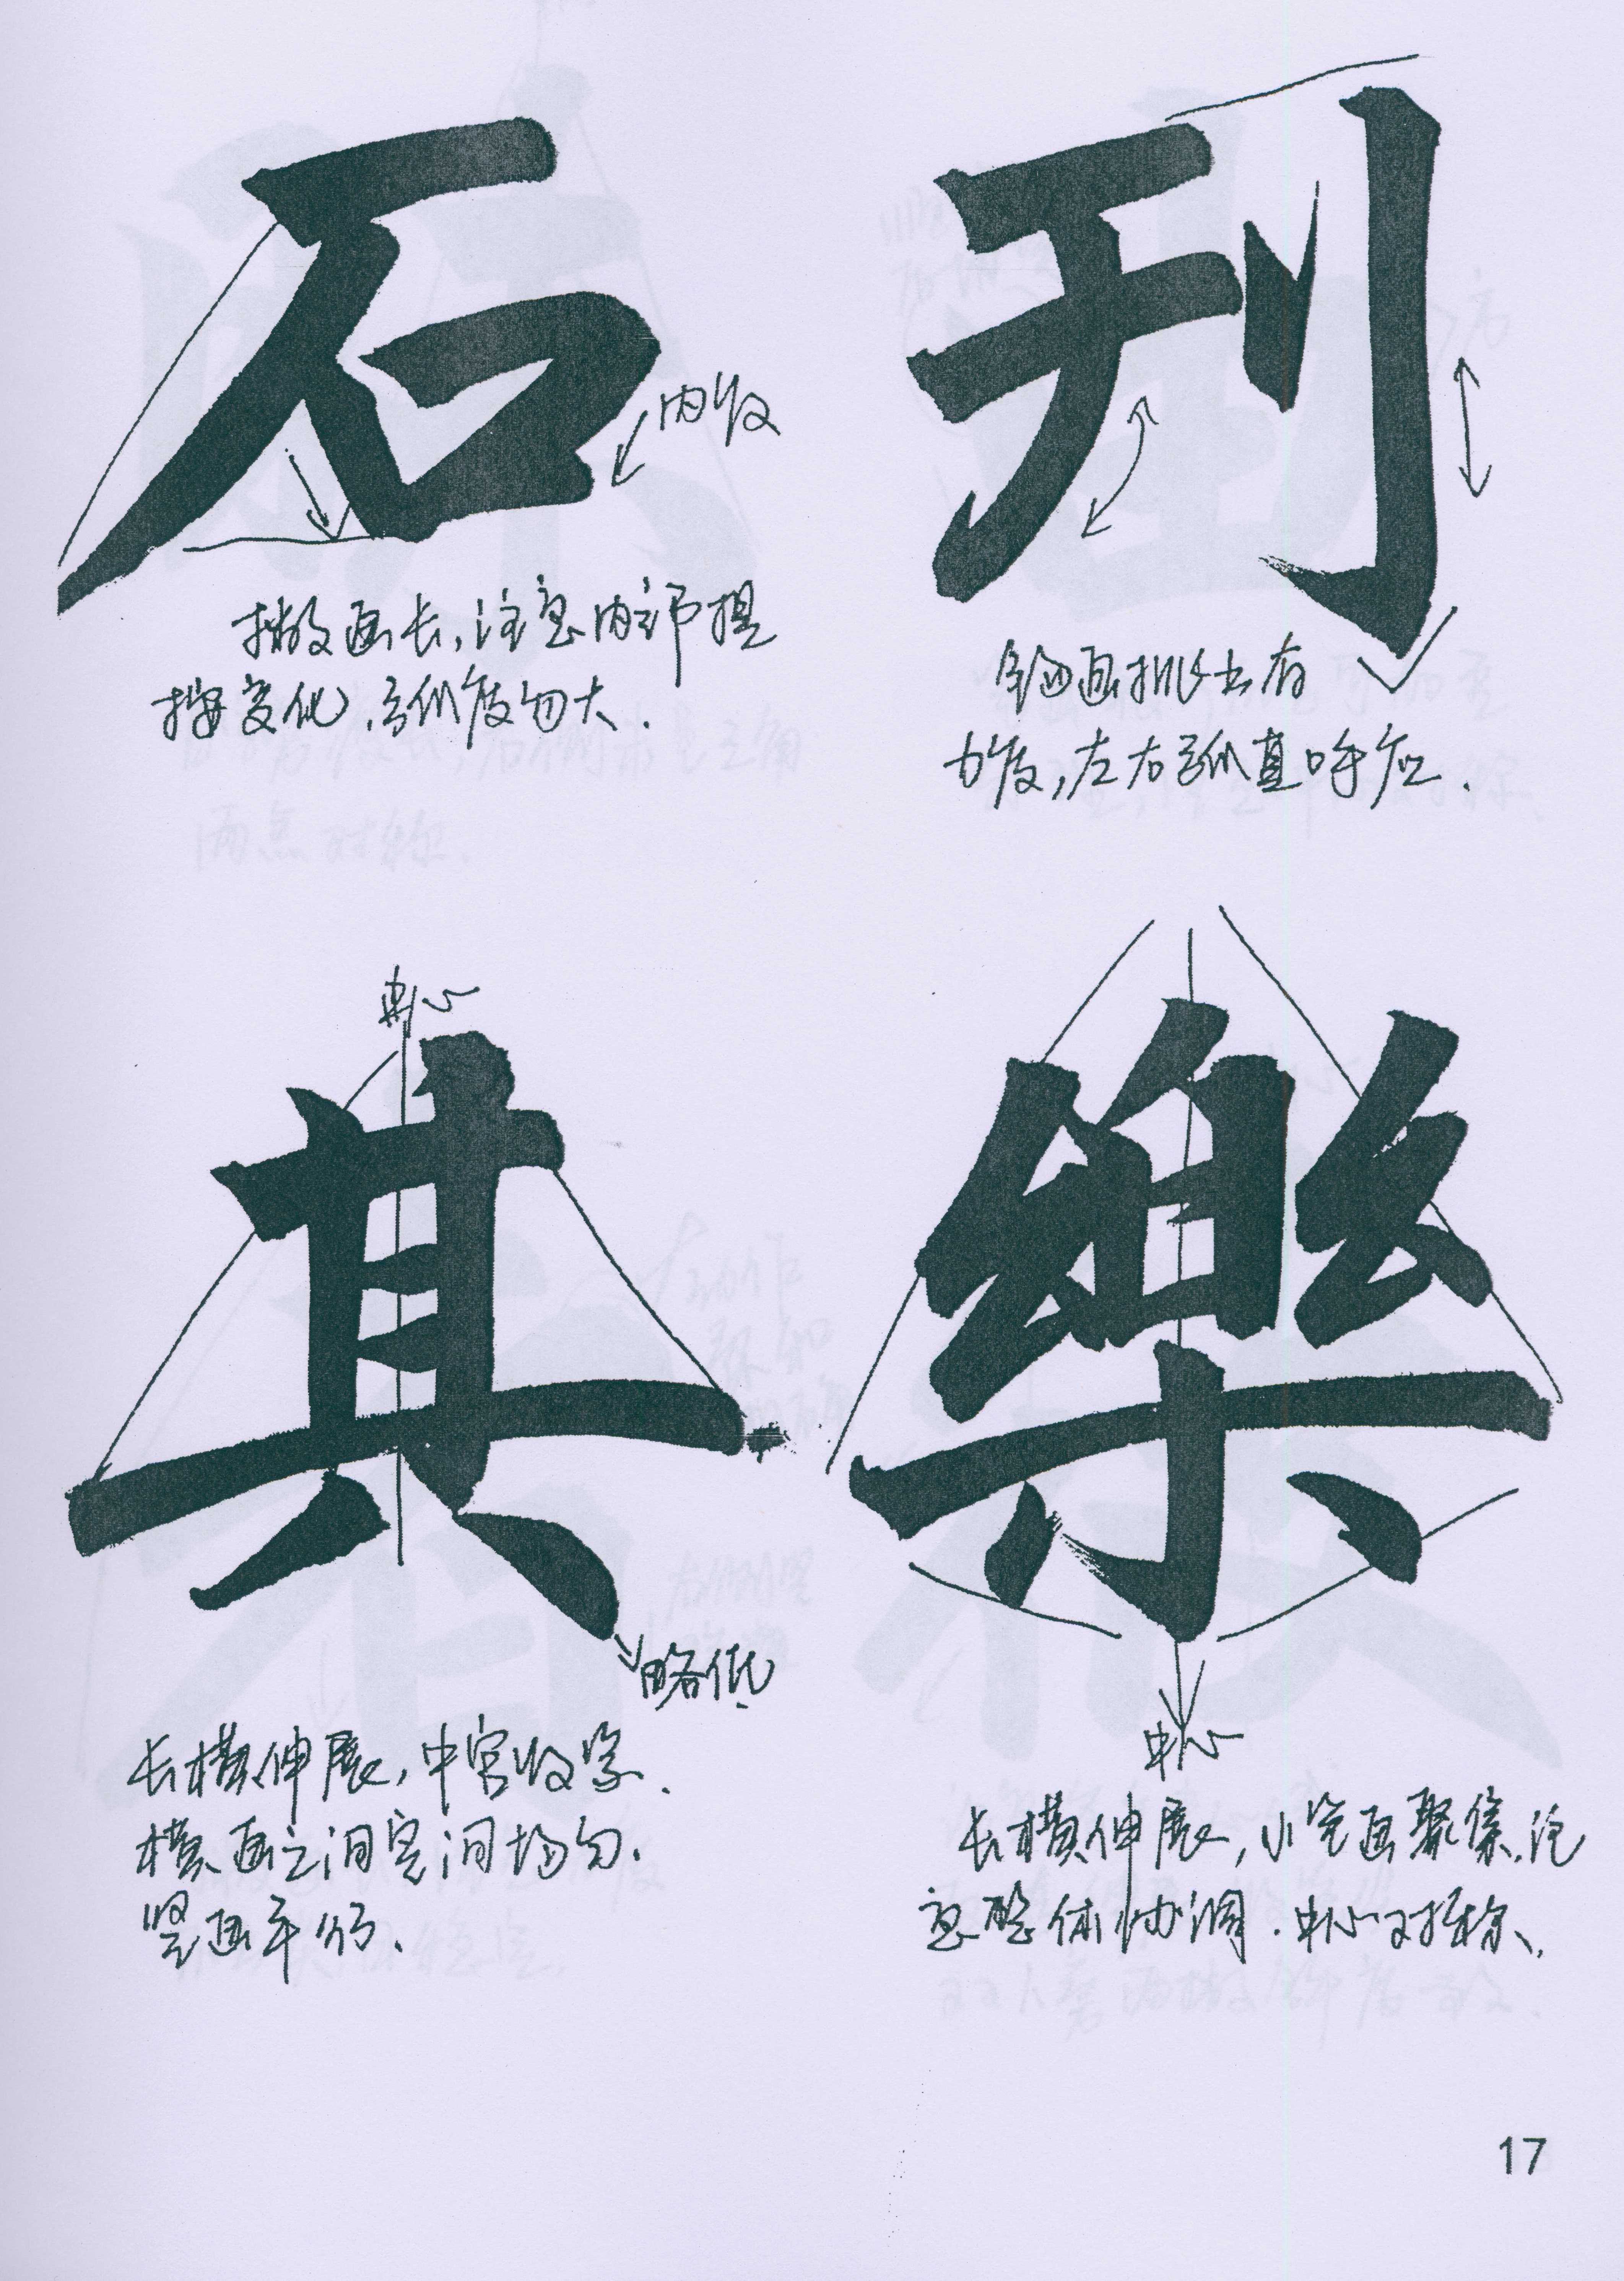 石
内收
撇画长,注意内部提
按变化,弧度勿大.
刊
钩画挑出有
力度,左右弧直呼应.
中心
其
略低
长横伸展,中宫收紧.
横画之间空间均匀.
竖画平行.
樂
中心
长横伸展,小笔画聚集,注
意整体协调.中心对称.
17